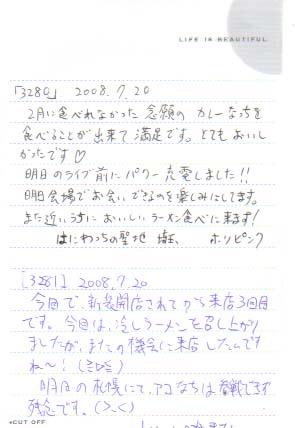 LIFE IS BEAUTIFUL
「3280」 2008.7.20
2月に食べれなかった 念願の カレーなっちを
食べることが出来て満足です。とてもおいし
かったです♡
明日のライブ前に パワー充電しました!!
明日会場でお会いできるのを楽しみにしてます。
また近いうちに おいしい ラーメン食べに来ます!
はにわっちの聖地 埼玉 ホリピンク
[3281] 2008.7.20
今回で、新装開店されてから来店3回目
です。今回は、冷しラーメンを召し上がり
ましたが、またの機会に来店したいです
ね〜!
明日の札幌にて、アコなちは参戦できず
残念です。(>.<)
*CUT OFF